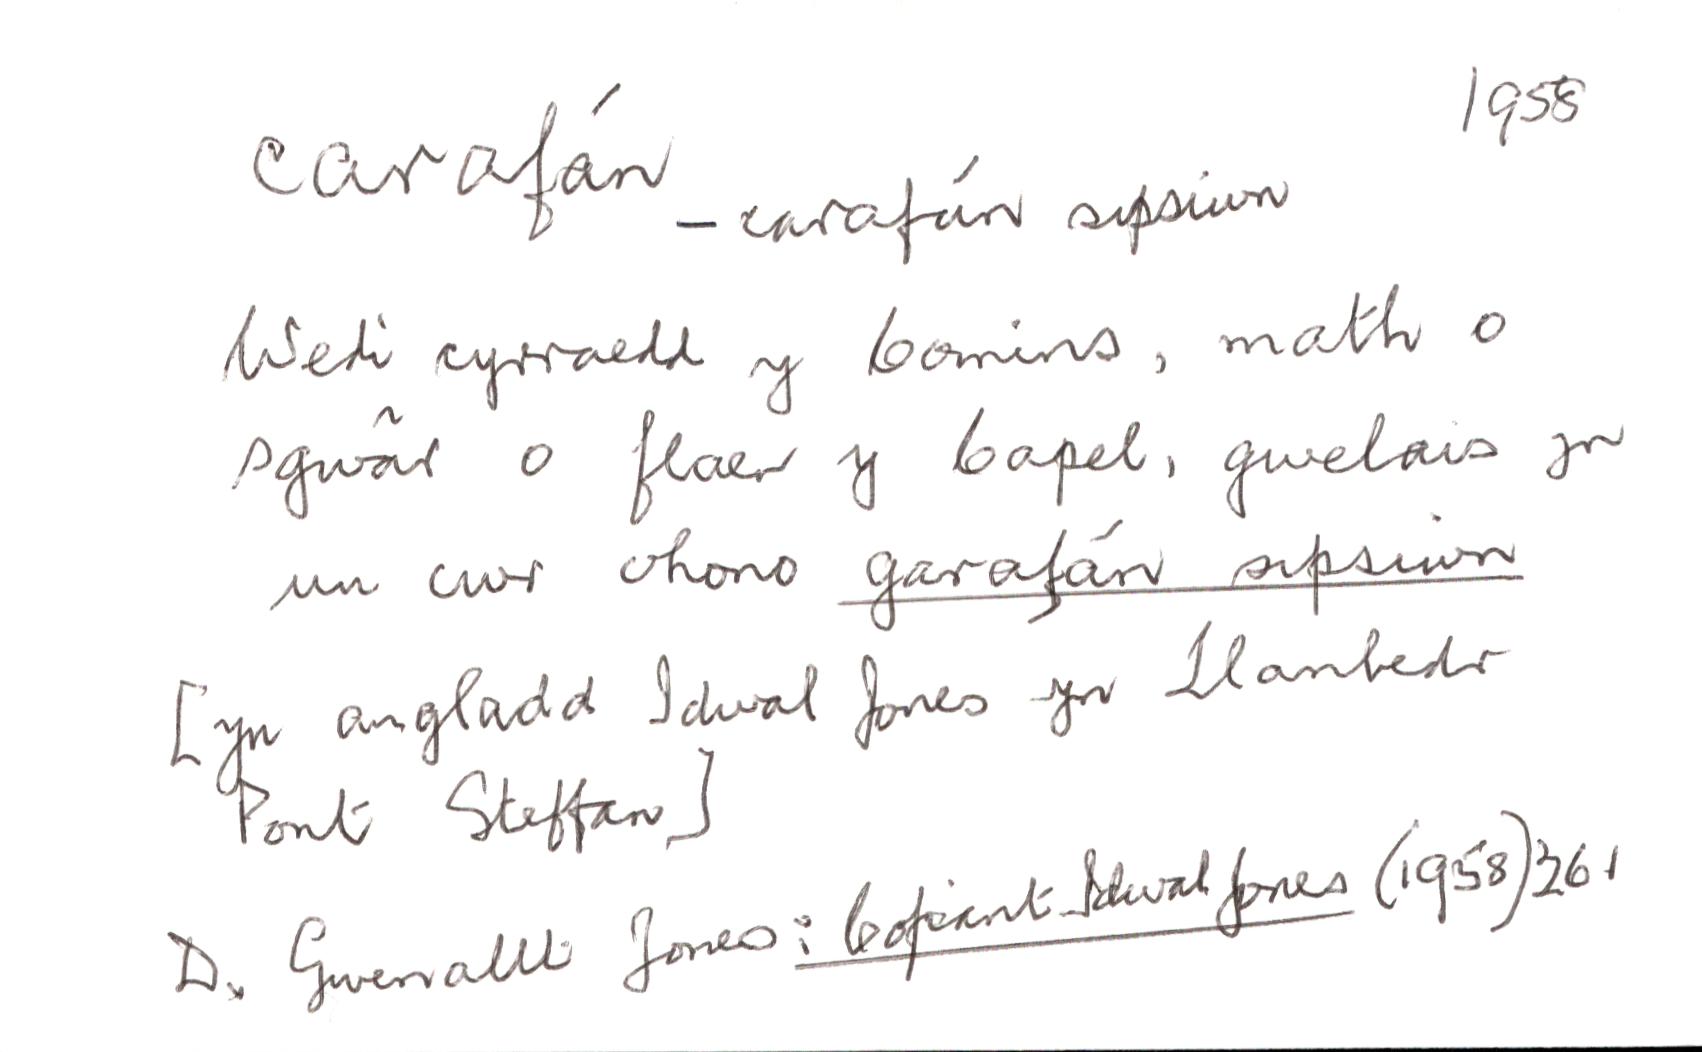 1958
carafán
– carafán sipsiwn
Wedi cyrraedd y Comins, math o
sgwâr o flaen y Capel, gwelais yn
un cwr ohono garafán sipsiwn
[yn angladd Idwal Jones yn Llanbedr
Pont Steffan]
D. Gwenallt Jones: Cofiant Idwal Jones (1958) 261